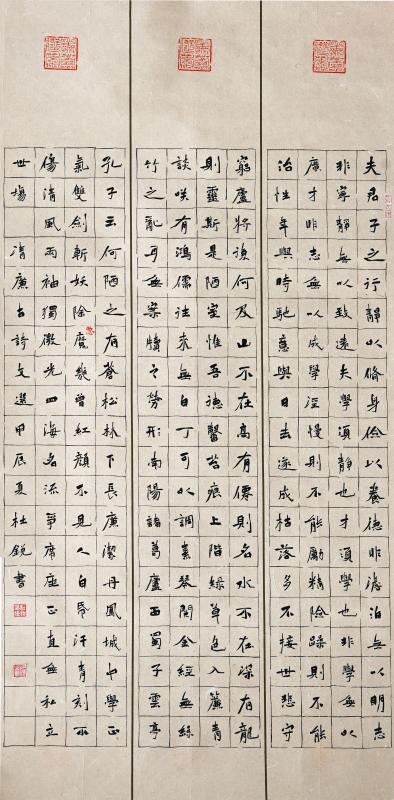 夫君子之行靜以脩身儉以養德非澹泊無以明志
非寧靜無以致遠夫學須靜也才須學也非學無以
廣才非志無以成學淫慢則不能勵精險躁則不能
治性年與時馳意與日去遂成枯落多不接世悲守
窮廬將復何及山不在高有僊則名水不在深有龍
則靈斯是陋室惟吾德馨苔痕上階綠草色入簾青
談咲有鴻儒往來無白丁可以調素琴閱金經無絲
竹之亂耳無案牘之勞形南陽諸葛廬西蜀子雲亭
孔子云何陋之有蒼松林下長廉潔丹鳳城中學正
氣雙劍斬妖除魔幾曾紅顏不見人白汗青刻
傷清風兩袖獨微光四海名流爭席座正直無私立
世塲清廉古詩文選甲辰夏杜銳書